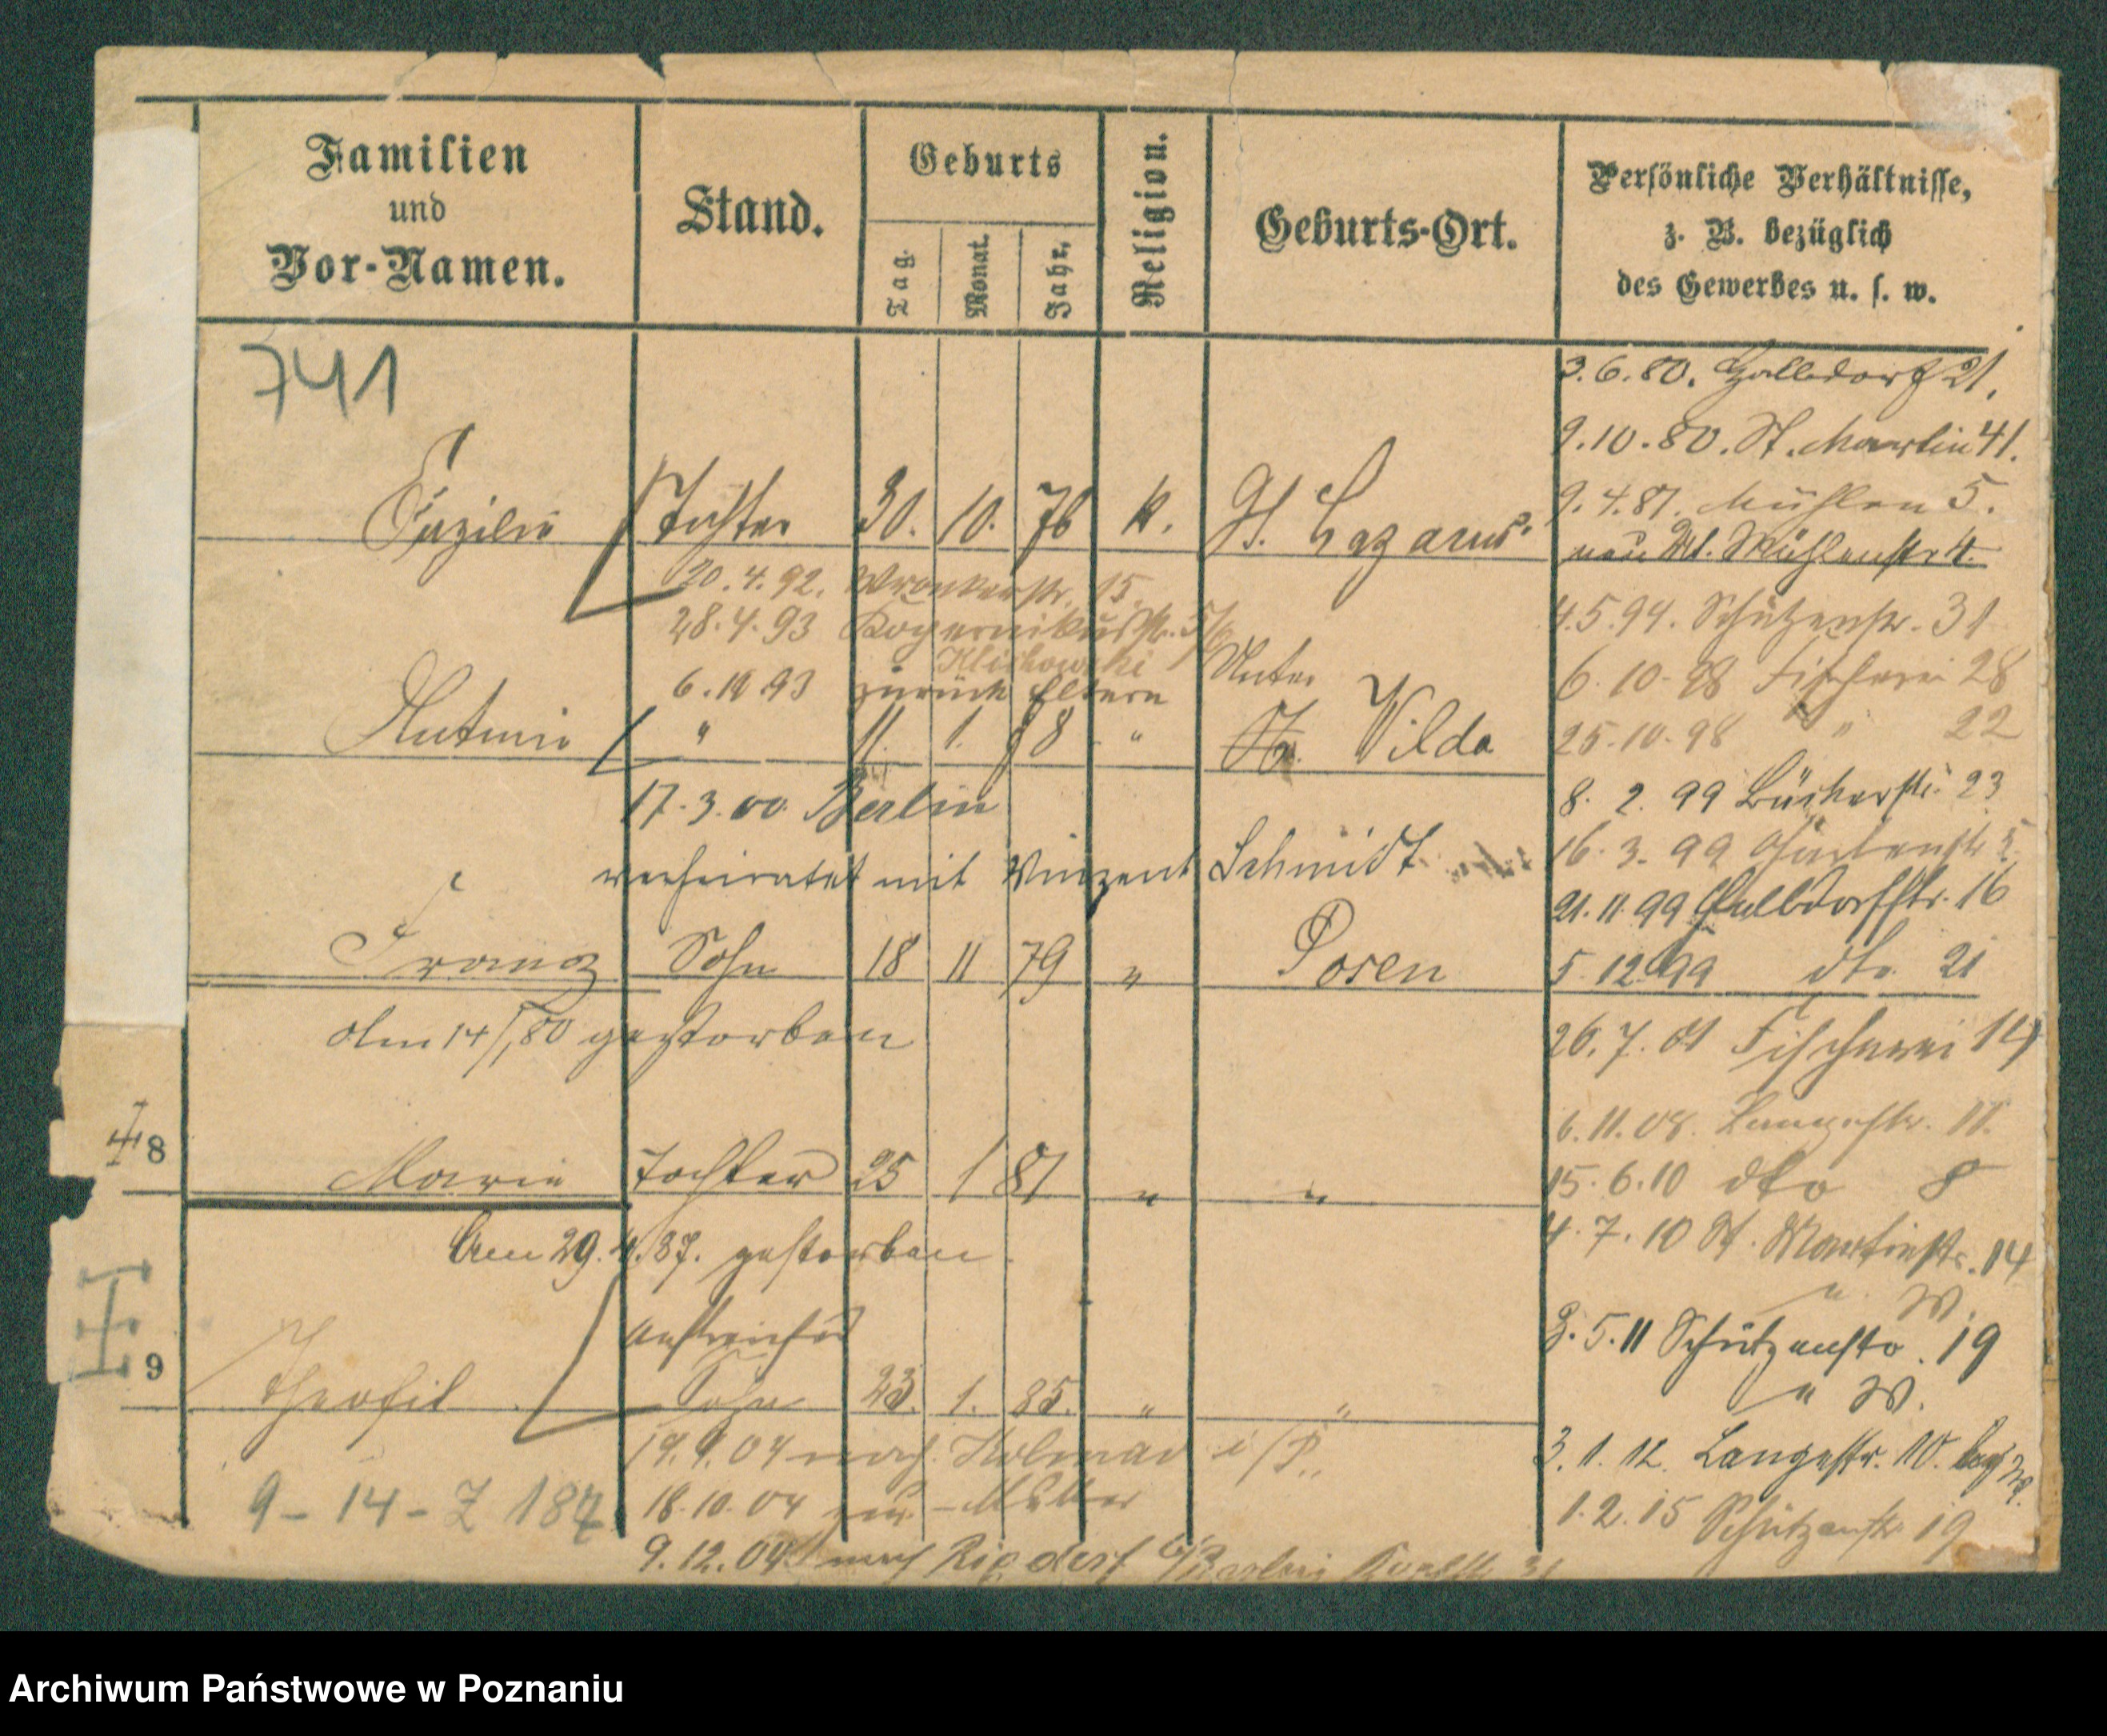 Familien
und
Vor-Namen.
Stand.
Geburts
Tag.
Monat.
Jahr.
Religion.
Geburts-Ort.
Persönliche Verhältnisse,
z. B. bezüglich
des Gewerbes u. s. w.
741
3.6.80. Halbdorf 21.
9.10.80. St. Martin 41.
9.4.81. Mühlen 5.
neu No. Mühlenstr 4.
Cäzilie Tochter 30. 10. 76 k. St. Lazarus
20.4.92. Wronkerstr. 15.
28.4.93 Kopernikusstr. 5/6
4.5.94. Schützenstr. 31
6.10.93 zurück Eltern
6.10.98 Fischerei 28
25.10.98 " 22
Antonie " 11. 1. 78 " Unter Wilda
17.3.00. Berlin
8.2.99 Bückerstr. 23
verheiratet mit Vinzent Schmidt
16.3.99 Gartenstr. 5
21.11.99 Halbdorfstr. 16
Franz Sohn 18 11 79 " Posen
5.12.99 dto 21
Am 14/1 80 gestorben
26.7.01 Fischerei 14
6.11.08. Langestr. 11.
8 Marie Tochter 25 1 81 " "
15.6.10 dto 8
Am 29.4.87. gestorben
4.7.10 St. Martinstr. 14
u. W.
Anstreicher
3.5.11 Schützenstr. 19
u W.
9 Theofil Sohn 23. 1. 85. " "
19.9.04 nach Kolmar i/P.
3.1.12. Langestr. 10.
9-14-Z 187
18.10.04 zur Mutter
1.2.15 Schützenstr 19
9.12.04 nach Rixdorf b/Berlin 31
Archiwum Państwowe w Poznaniu